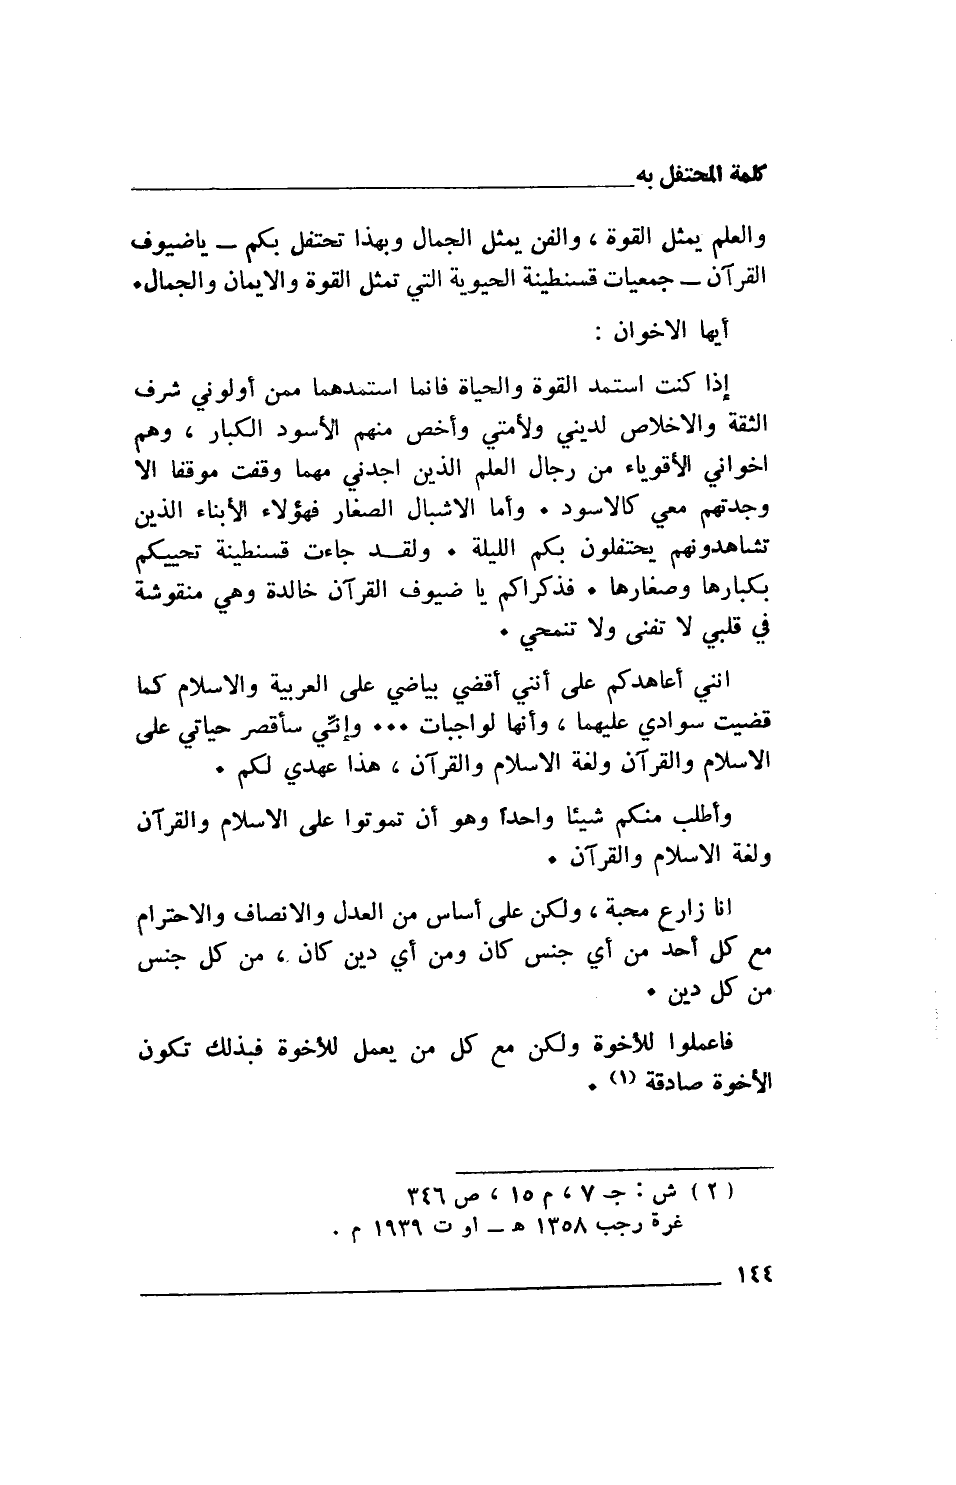 كلمة المحتفل به
والعلم يمثل القوة ، والفن يمثل الجمال وبهذا تحتفل بكم ــ ياضيوف
القرآن ــ جمعيات قسنطينة الحيوية التي تمثل القوة والايمان والجمال.
أيها الاخوان :
إذا كنت استمد القوة والحياة فانما استمدهما ممن أولوني شرف
الثقة والاخلاص لديني ولأمتي وأخص منهم الأسود الكبار ، وهم
اخواني الأقوياء من رجال العلم الذين اجدني مهما وقفت موقفا الا
وجدتهم معي كالاسود . وأما الاشبال الصغار فهؤلاء الأبناء الذين
تشاهدونهم يحتفلون بكم الليلة . ولقــد جاءت قسنطينة تحييكم
بكبارها وصغارها . فذكراكم يا ضيوف القرآن خالدة وهي منقوشة
في قلبي لا تفنى ولا تنمحي .
انني أعاهدكم على أنني أقضي بياضي على العربية والاسلام كما
قضيت سوادي عليهما ، وأنها لواجبات ... وإنّي سأقصر حياتي على
الاسلام والقرآن ولغة الاسلام والقرآن ، هذا عهدي لكم .
وأطلب منكم شيئا واحداً وهو أن تموتوا على الاسلام والقرآن
ولغة الاسلام والقرآن .
انا زارع محبة ، ولكن على أساس من العدل والانصاف والاحترام
مع كل أحد من أي جنس كان ومن أي دين كان ، من كل جنس
من كل دين .
فاعملوا للأخوة ولكن مع كل من يعمل للأخوة فبذلك تكون
الأخوة صادقة (١) .
( ٢ ) ش : جـ ٧ ، م ١٥ ، ص ٣٤٦
غرة رجب ١٣٥٨ هـ ــ او ت ١٩٣٩ م .
١٤٤